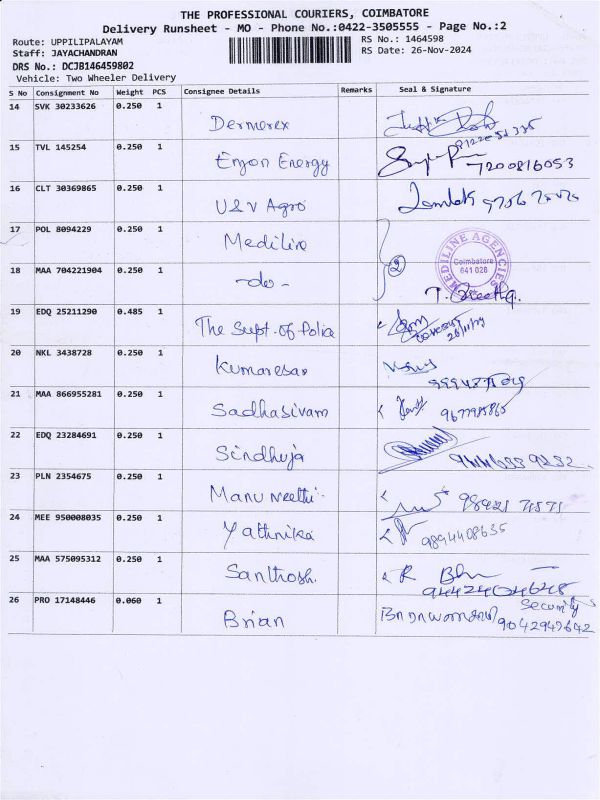 THE PROFESSIONAL COURIERS, COIMBATORE
Delivery Runsheet - MO - Phone No.:0422-3505555 - Page No.:2
Route: UPPILIPALAYAM RS No.: 1464598
Staff: JAYACHANDRAN RS Date: 26-Nov-2024
DRS No.: DCJB146459802
Vehicle: Two Wheeler Delivery
S No Consignment No Weight PCS Consignee Details Remarks Seal & Signature
14 SVK 30233626 0.250 1 Dermorex
15 TVL 145254 0.250 1 Enjon Energy 7200816053
16 CLT 30369865 0.250 1 U&V Agro
17 POL 8094229 0.250 1 Mediline
MEDILINE AGENCIES
Coimbatore
641 028
2
18 MAA 704221904 0.250 1 -do-
19 EDQ 25211290 0.485 1 The Supt. of Police
26/11/24
20 NKL 3438728 0.250 1 Kumaresan
21 MAA 866955281 0.250 1 Sadhasivam
22 EDQ 23284691 0.250 1 Sindhuja
23 PLN 2354675 0.250 1 Manu Neethi
24 MEE 950008035 0.250 1 Yathnika 9894408635
25 MAA 575095312 0.250 1 Santhosh.
26 PRO 17148446 0.060 1 Brian Security
9042949642